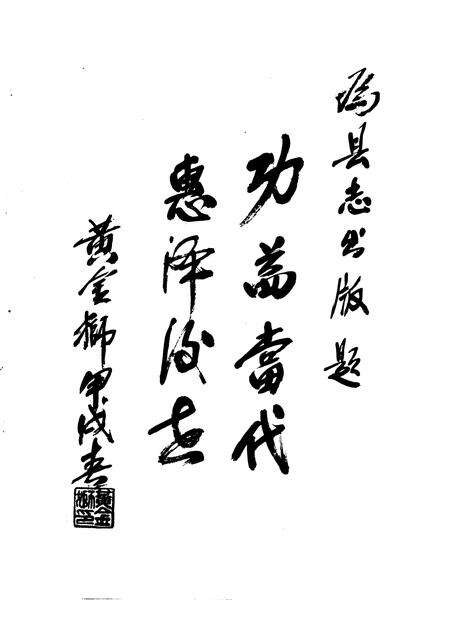 县志出版题
功益當代
惠泽後世
黄金獅甲戌春
黄金獅印